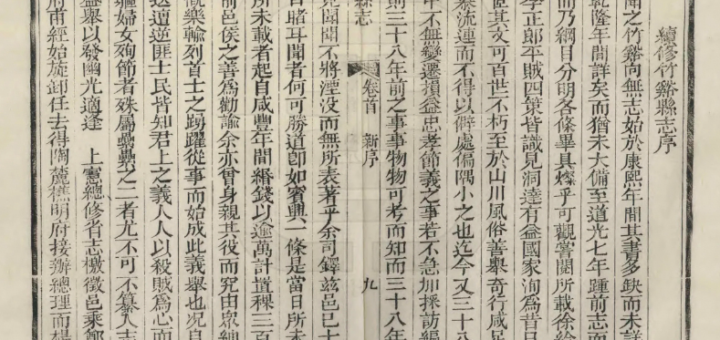 續修竹谿縣志序
聞之竹谿向無志始於康熙年間其書多缺而未詳
乾隆年間詳矣而猶未大備至道光七年踵前志而
而乃綱目分明各條畢具燦乎可觀嘗閱所載徐給
李正郎平賊四策皆識見洞達有益國家洵為昔日
臣其文可百世不朽至於山川風俗善舉奇行咸足
暴流連而不得以僻處偏隅小之也迄今又三十八
年不無變遷損益忠孝節義之事若不急加採訪編
則三十八年前之事事物物可考而知而三十八年
縣志
卷首
新序
九
見聞聞不將湮没而無所表著乎余司鐸茲邑已十
目睹耳聞者何可勝道即如賓興一條是當日所未
所未載者起自咸豐年間緡錢以逾萬計置稞三百
前邑侯之善為勸諭余亦曾身親其役而究由衆紳
歡樂輸列首士之踴躍從事而始成此義舉也况自
這遭逆匪士民皆知君上之義人人以殺賊為心而
孀婦女殉節者殊屬纍纍之二者尤不可不纂入志
盛舉以發幽光適逢 上憲總修省志檄徵邑乘鄭
府甫經始旋卸任去得陶麓樵明府接辦總理而楊